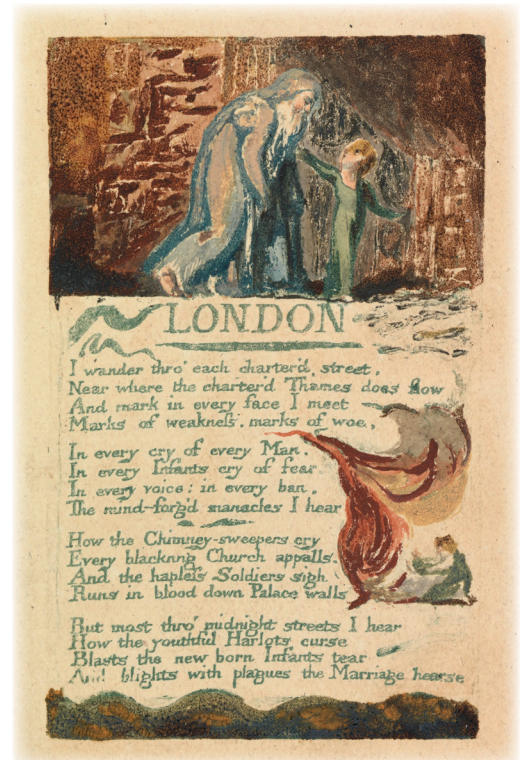 LONDON
I wander thro' each charter'd street,
Near where the charter'd Thames does flow
And mark in every face I meet
Marks of weakness, marks of woe.
In every cry of every Man,
In every Infants cry of fear,
In every voice: in every ban,
The mind-forg'd manacles I hear
How the Chimney-sweepers cry
Every blackning Church appalls,
And the hapless Soldiers sigh
Runs in blood down Palace walls
But most thro' midnight streets I hear
How the youthful Harlots curse
Blasts the new born Infants tear
And blights with plagues the Marriage hearse